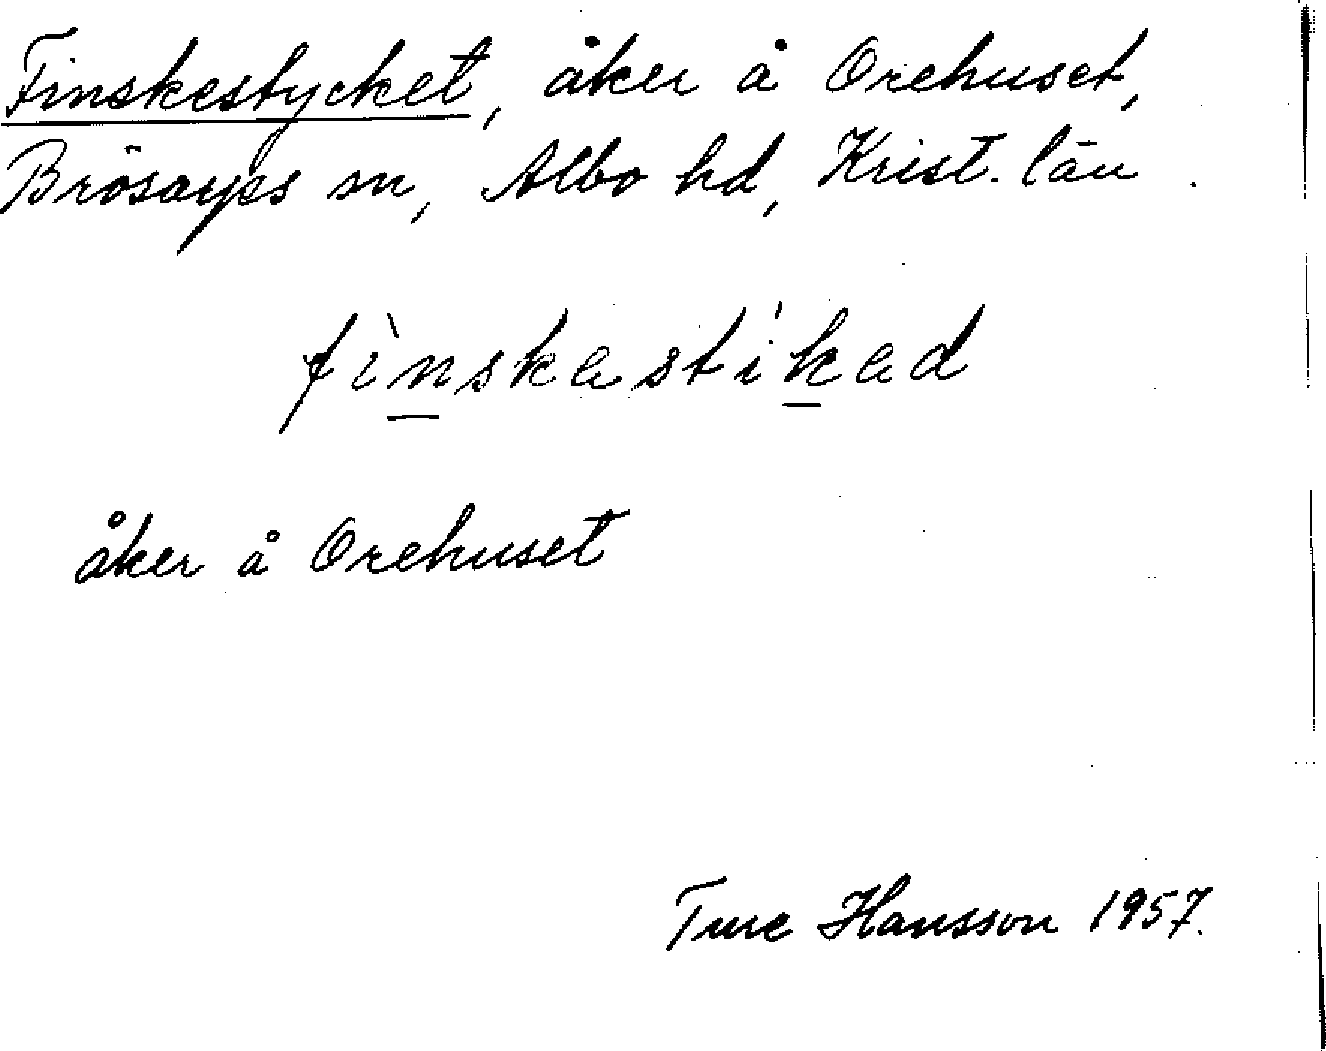 Finskestycket, åker å Orehuset,
Brösarps sn, Albo hd, Krist. län.
fìnskastikad
åker å Orehuset
Ture Hansson 1957.